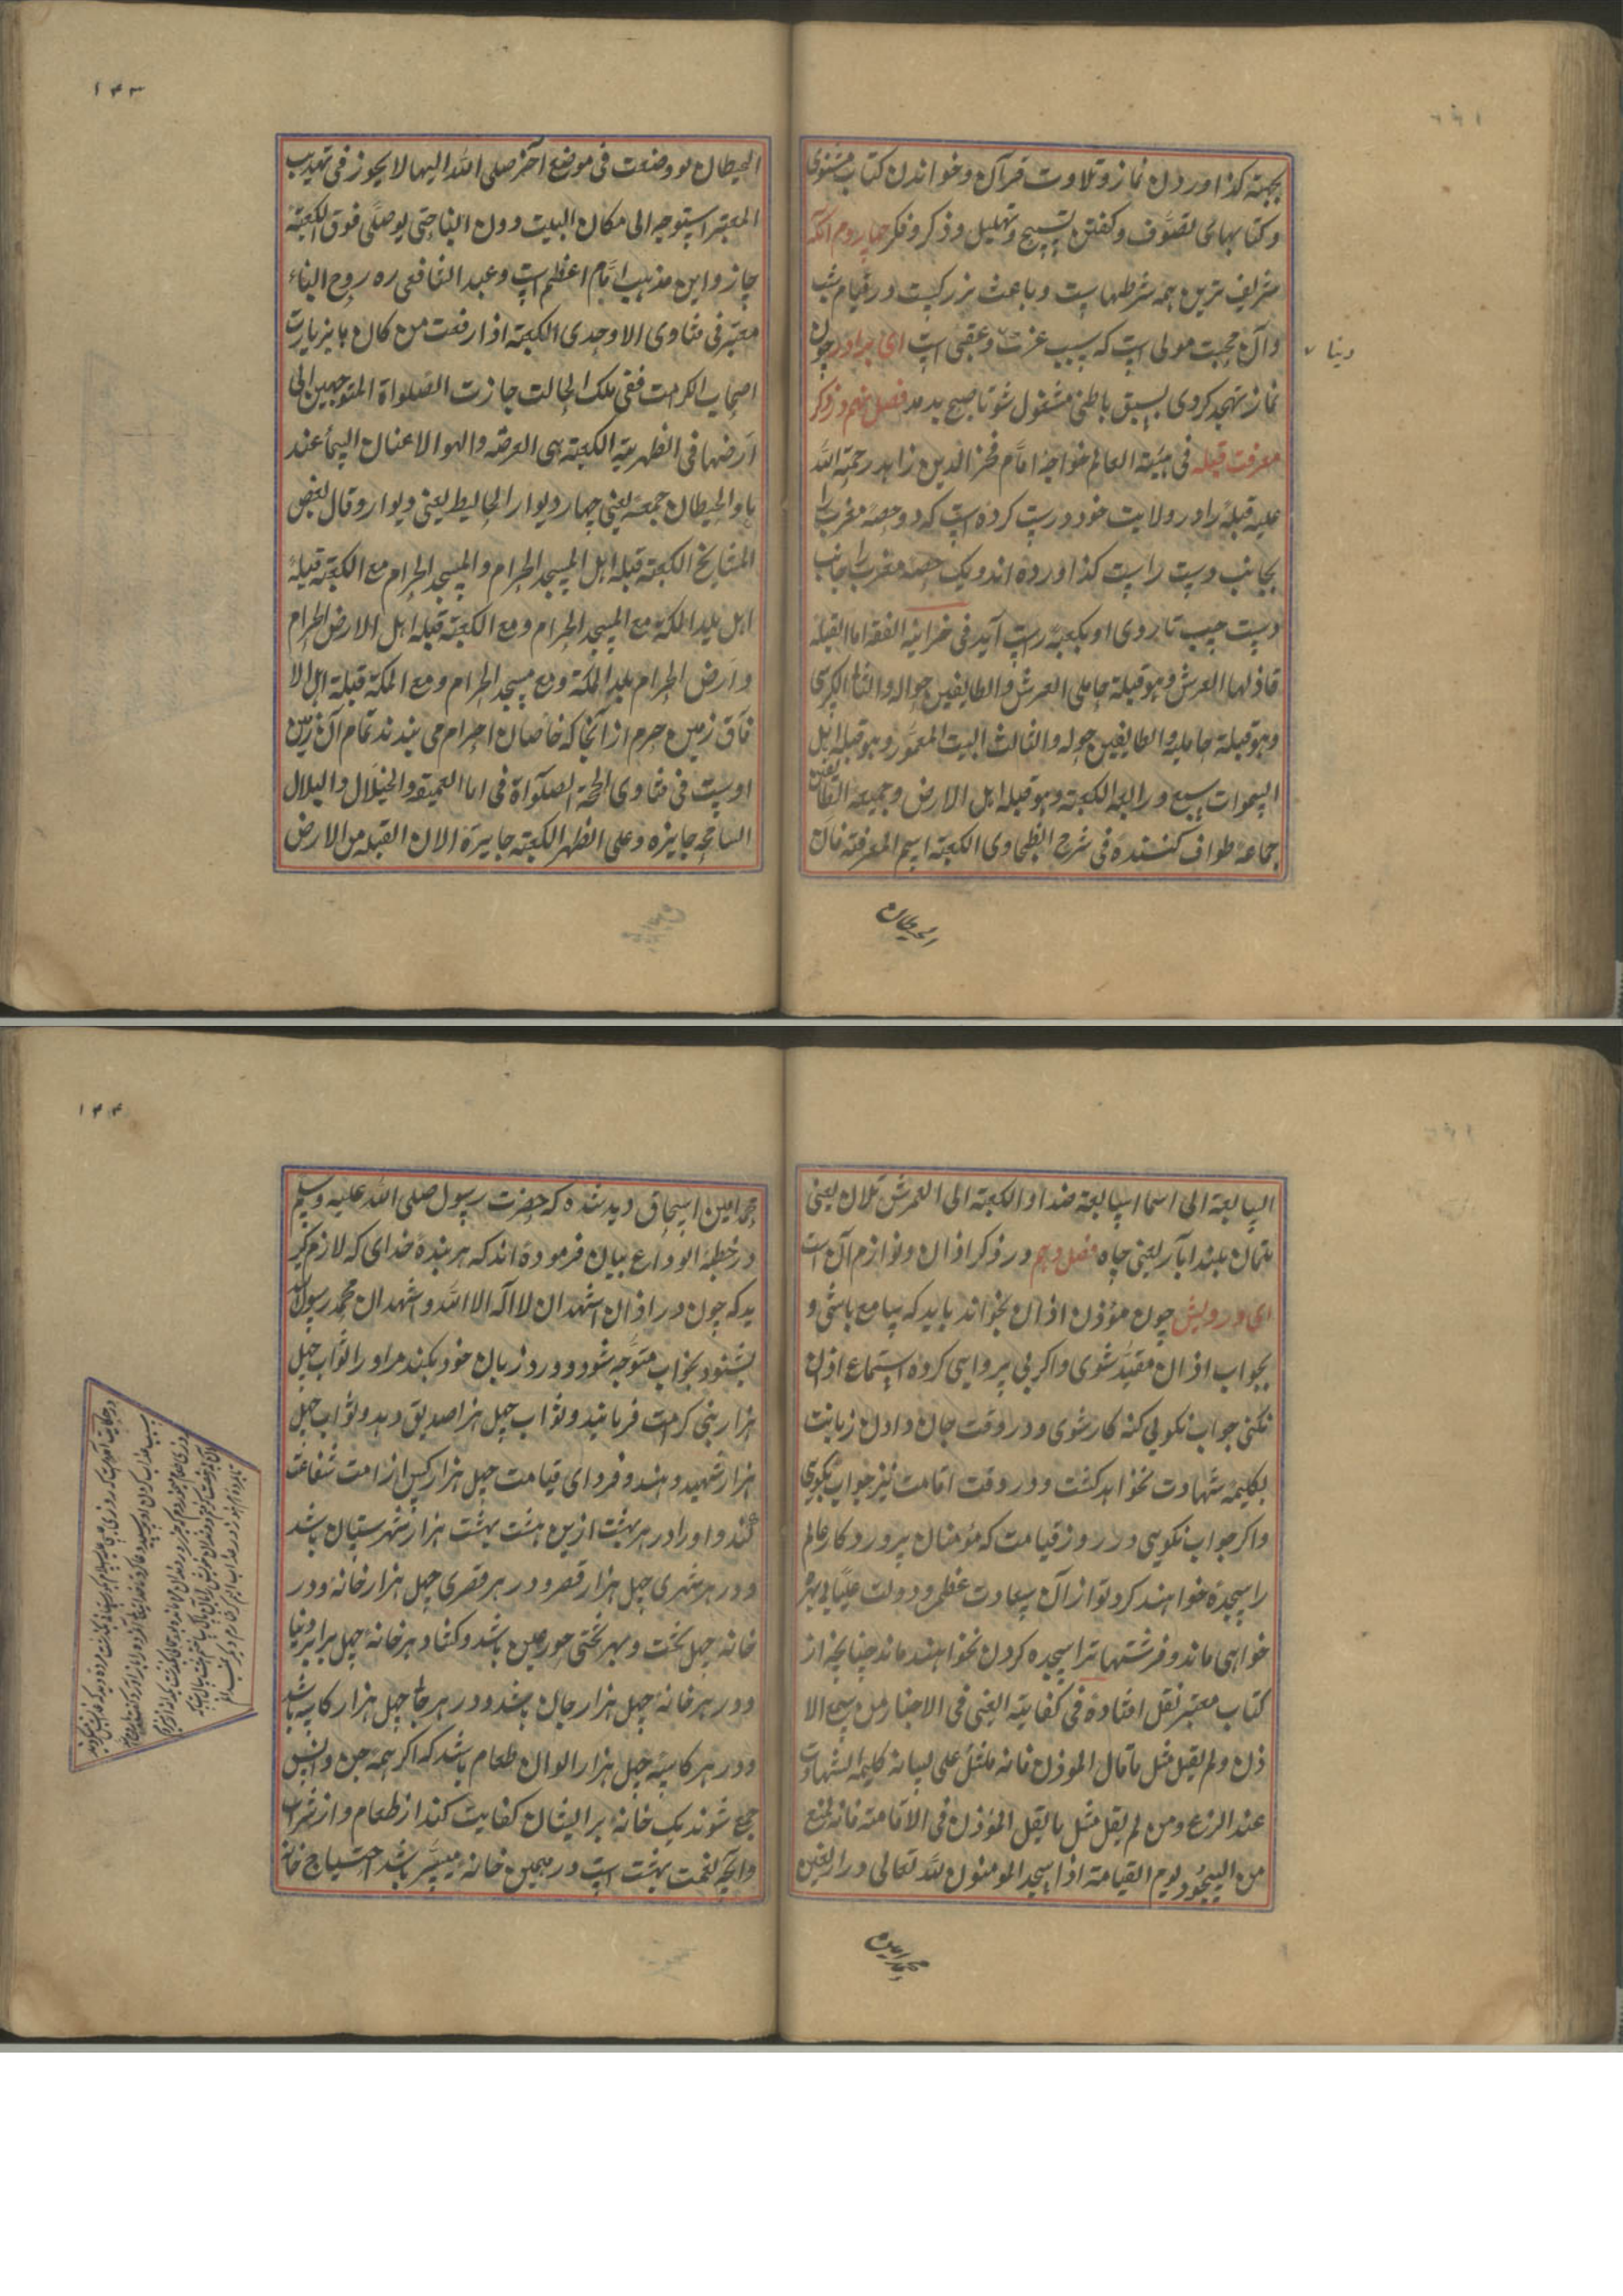 بجهته کذاوردن نماز و تلاوت قرآن و خواندن کتاب مثنوی
و کتابهائی تصوّف و کفتن تسبیح و تهلیل و ذکر و فکر چهاروم آنکه
شریف ترین همه شرطهاست و باعث بزرکیست در قیام شب
و آن محبت مولی است که سبب عزت و عقبی است ای برادر چون
دینا
نماز تهجد کردی بسبق باطنی مشغول شو تا صبح بدمد فصل نهم در ذکر
معرفت قبله فی هیئة العالم خواجه امام فخر الدین زاهد رحمة الله
علیه قبله را در ولایت خود درست کرده است که دو حصهٔ مغرب را
بجانب دست راست کذاورده اند و یک حصه مغرب را بجانب
دست چپ تا روی او بکعبه راست آید فی خزانه الفقه اما القبله
فاولها العرش و هو قبلة حاملی العرش و الطایفین حواله و الثانی الکرسی
و هو قبلة حاملیه و الطایفین حوله و الثالث البیت المعمور و هو قبله اهل
السموات سبع و رابعه الکعبته و هو قبله اهل الارض و جمیعه الطائفین
جماعه طواف کننده فی شرح الطحاوی الکعبته اسم المعرفته فان
الحیطان
۱۴۳
الحیطان لو وضعت فی موضع آخر صلی الله الیها لا یجوز فی تهذیب
المعتبر استوجه الی مکان البیت دون البنا حتی لو صلی فوق الکعبته
جاز و این مذهب امّام اعظم است و عبد الشافعی ره روح البناء
معتبر فی فتاوی الاوحدی الکعبته اذا رفعت من کان با یزیارت
اصحاب الکرامت ففی تلک الحالت جازت الصلواة المتوجهین الی
ارضها فی الظهریته الکعبته هی العرصه و الهوا لا عنان السمأ عند
باو الحیطان جمعه یعنی چهار دیوار الحایط یعنی دیوار و قال بعض
المشایخ الکعبته قبله اهل المسجد الحرام و المسجد الحرام مع الکعبته قبلهٔ
اهل بلد المکه مع المسجد الحرام و مع الکعبته قبله اهل الارض الحرام
و ارض الحرام بلد المکة و مع مسجد الحرام و مع المکة قبلة اهل الا
فآق زمین حرم از آنجا که خاصان احرام می بندند تمام آن زمین
اوست فی فتاوی الحجة الصلوٓاة فی اما العمیقه و الجبلال و البلال
السامحه جایزه و علی الظهر الکعبته جایزة الان القبله من الارض
السابعة الی اسما السابعته ضداو الکعبته الی العرش تلان یعنی
تلتان بلند ابآر یعنی چاه فصل دهم در ذکر اذان و لوازم آن است
ای درویش چون مؤذن اذان بخواند باید که سامع باشی و
بجواب اذان مقیّد شوی و اکر بی پروایی کرده استماع اذان
نکنی جواب نکوبی کنه کار شوی و در وقت جان دادن زبانت
بکلیمهٔ شهادت نخواهد کشت و در وقت اقامت نیز جواب بکوی
و اکر جواب نکویی در روز قیامت که مؤمنان پروردکار عالم
را سجده خواهند کرد تو از آن سعادت عظمی و دولت علیا بی بهره
خواهی ماند و فرشتها ترا سجده کردن نخواهند ماند چنانچه از
کتاب معتبر نقل افتاده فی کفایته الغنی فی الاخبار من سمع الا
ذن و لم یقل مثل ما قال المؤذن فانه یثقل علی لسانه کلیمه الشهادت
عند النزع و من لم یقل مثل ما یقل المؤذن فی الاقامته فانه یمنع
من السجود یوم القیامته اذا سجد المومنون لله تعالی در اربعین
محمد امین
۱۴۴
محمد امین اسحاق دید شده که حضرت رسول صلی الله علیه و سلم
در خطبهٔ الوداع بیان فرموده اند که هر بندهٔ خدای که لازم کیر
ید که چون در اذان اشهد ان لا اله الا الله و اشهد ان محمد رسول الله
بشنود بجواب متوجه شود و ورد زبان خود بکند مر او را ثواب چهل
هزار بنی کرامت فرمانید و ثواب چهل هزار صدیق دهد و ثواب چهل
هزار شهید دهند و فردای قیامت چهل هزار کس از امت شفاعت
کند و او را در هر بهشت ازین هشت بهشت هزار شهرستان باشد
و در هر شهری چهل هزار قصر و در هر قصری چهل هزار خانه و در
خانه چهل تخت و بهر تختی حور عین باشد و کشاد هر خانهٔ چهل برابر دنیا
و در هر خانه چهل هزار جان باشد و در هر جا چهل هزار کاسه باشد
و در هر کاسه چهل هزار الوان طعام باشد که اکر همه جن و انس
جمع شوند یک خانه بر ایشان کفایت کند از طعام و از شراب
و آنچه نعمت بهشت است در همین خانه میسّر باشد احتیاج خانه